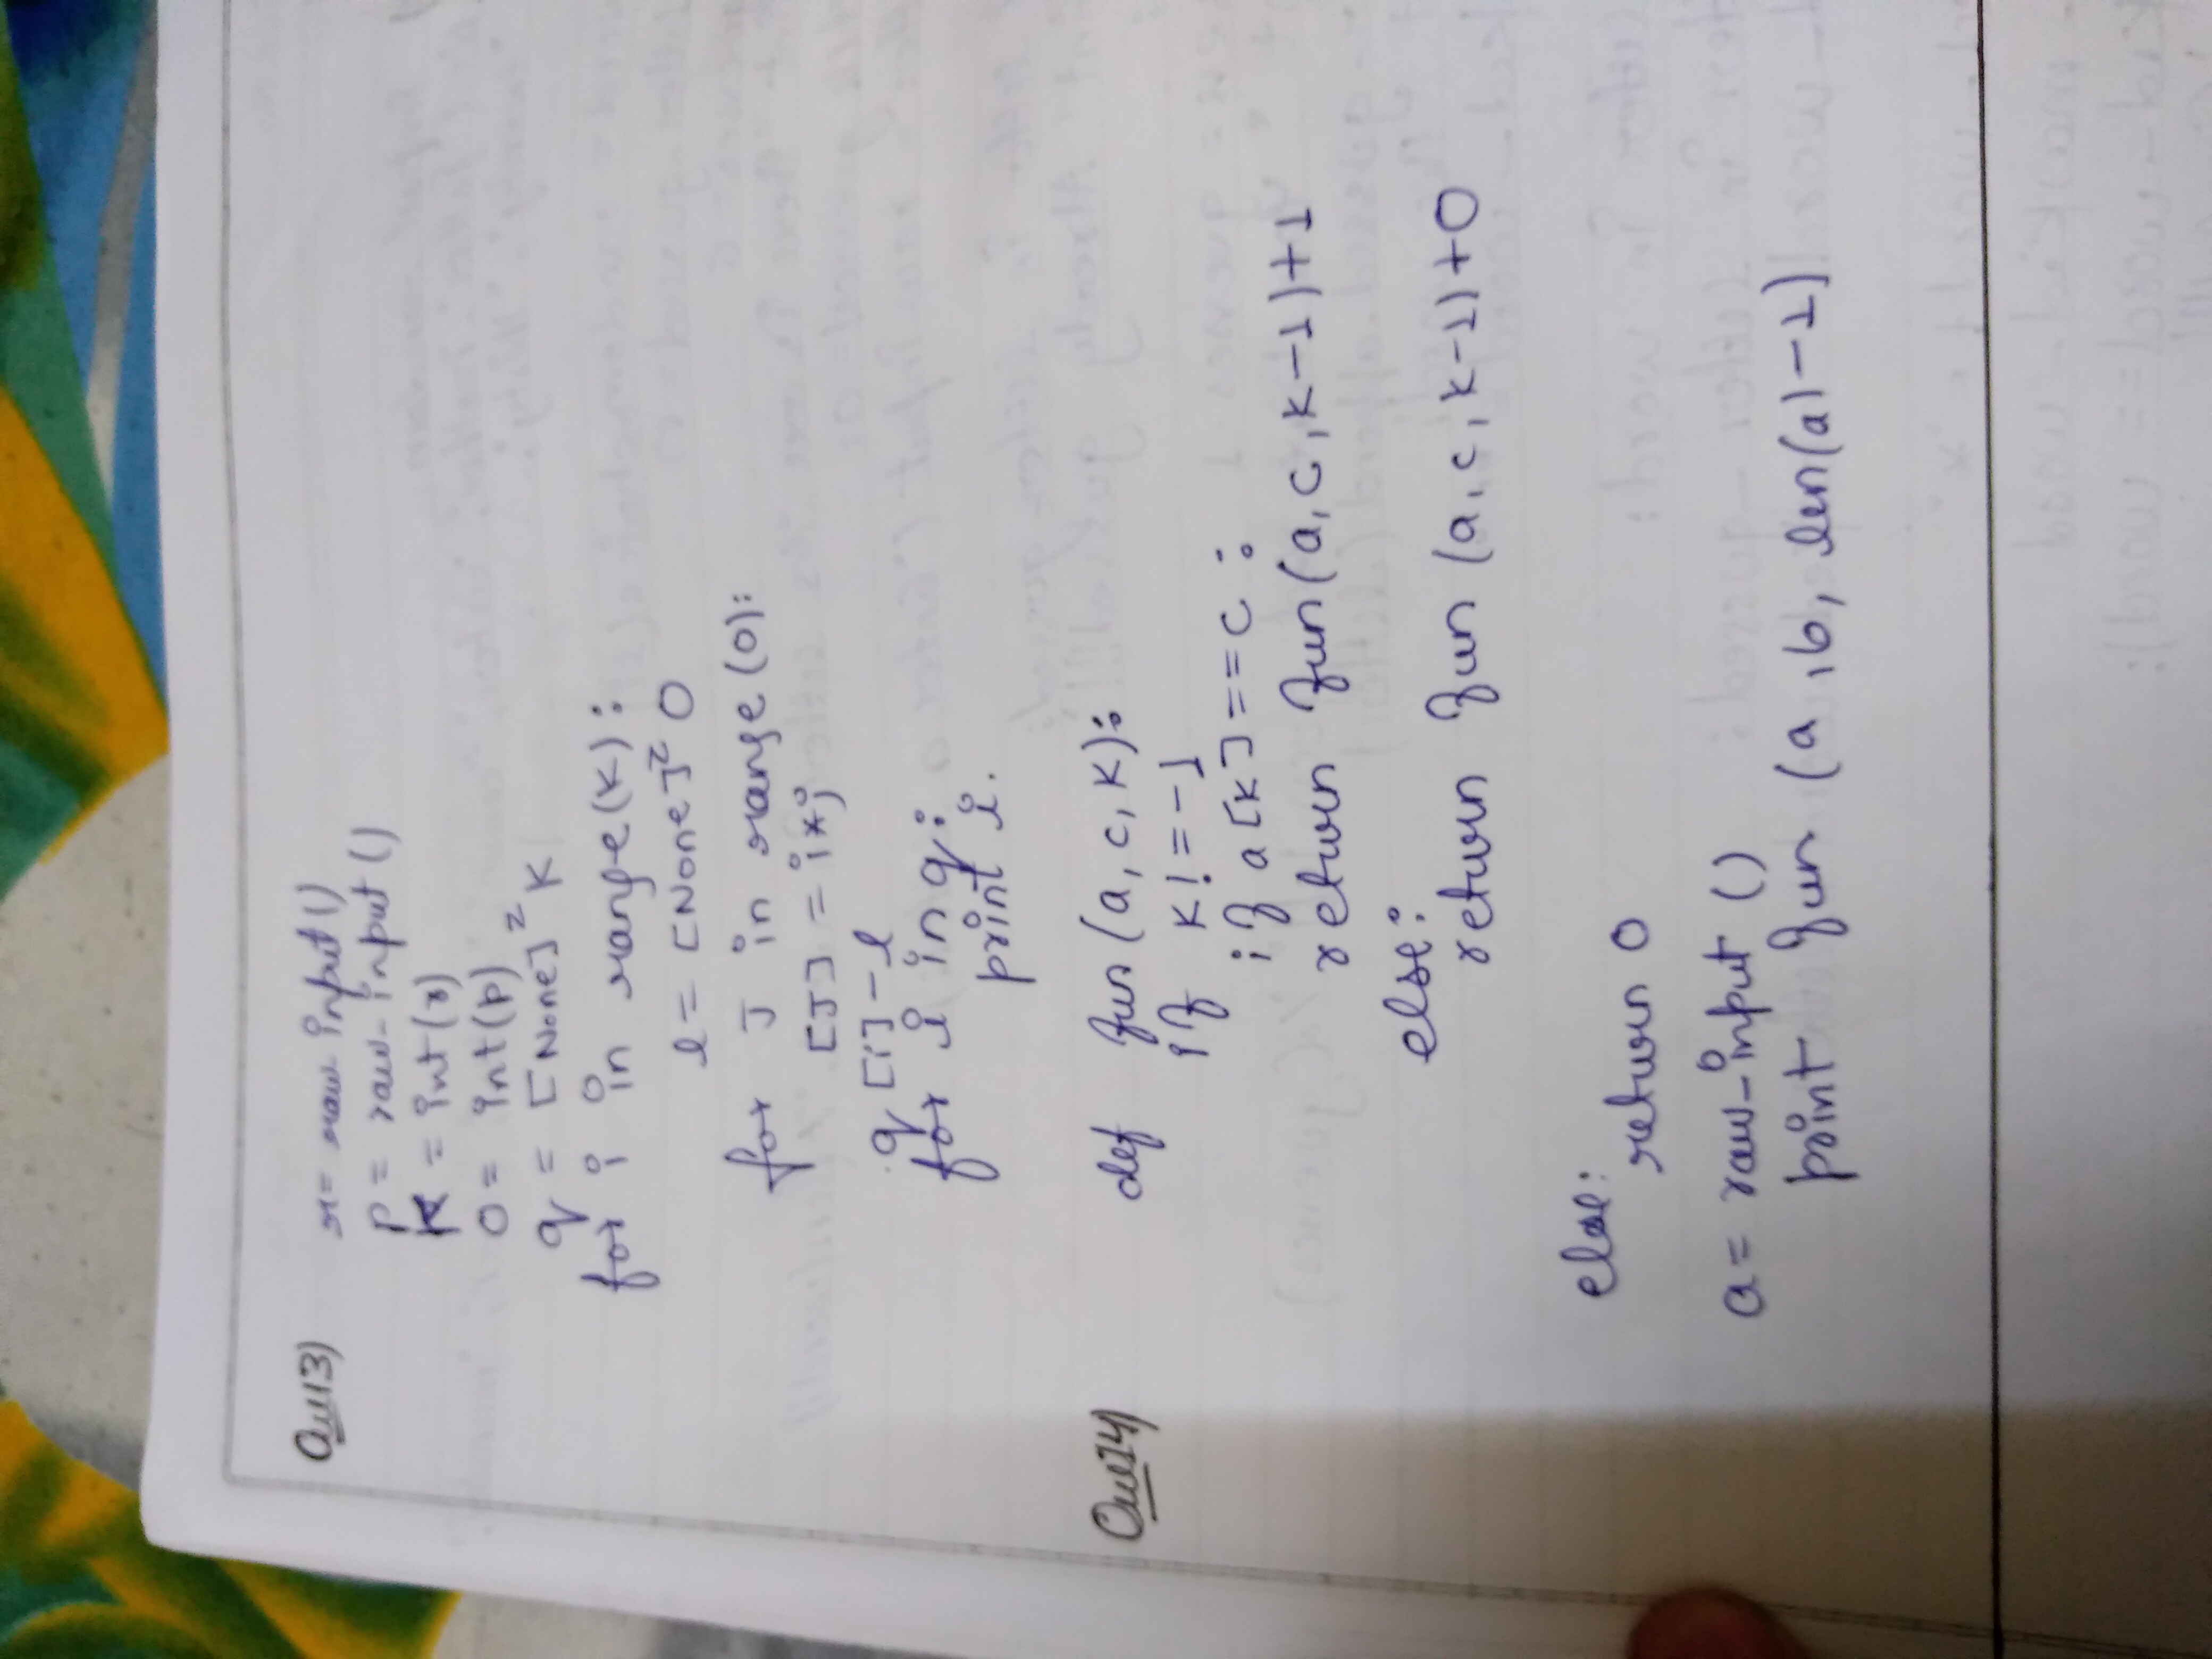 Qu13)
r= raw-input()
p= raw-input()
K = int(r)
O = int(p)
q = [None]² K
for i in range(K):
l = [None]² O
for J in range(O):
[J] = i*j
q[i]-l
for i in q:
print i.
Qu14)
def fun(a,c,K):
if K!=-1
if a[K]==c:
return fun(a,c,K-1)+1
else:
return fun(a,c,K-1)+0
else:
return 0
a= raw-input()
print fun(a,b,len(a)-1)